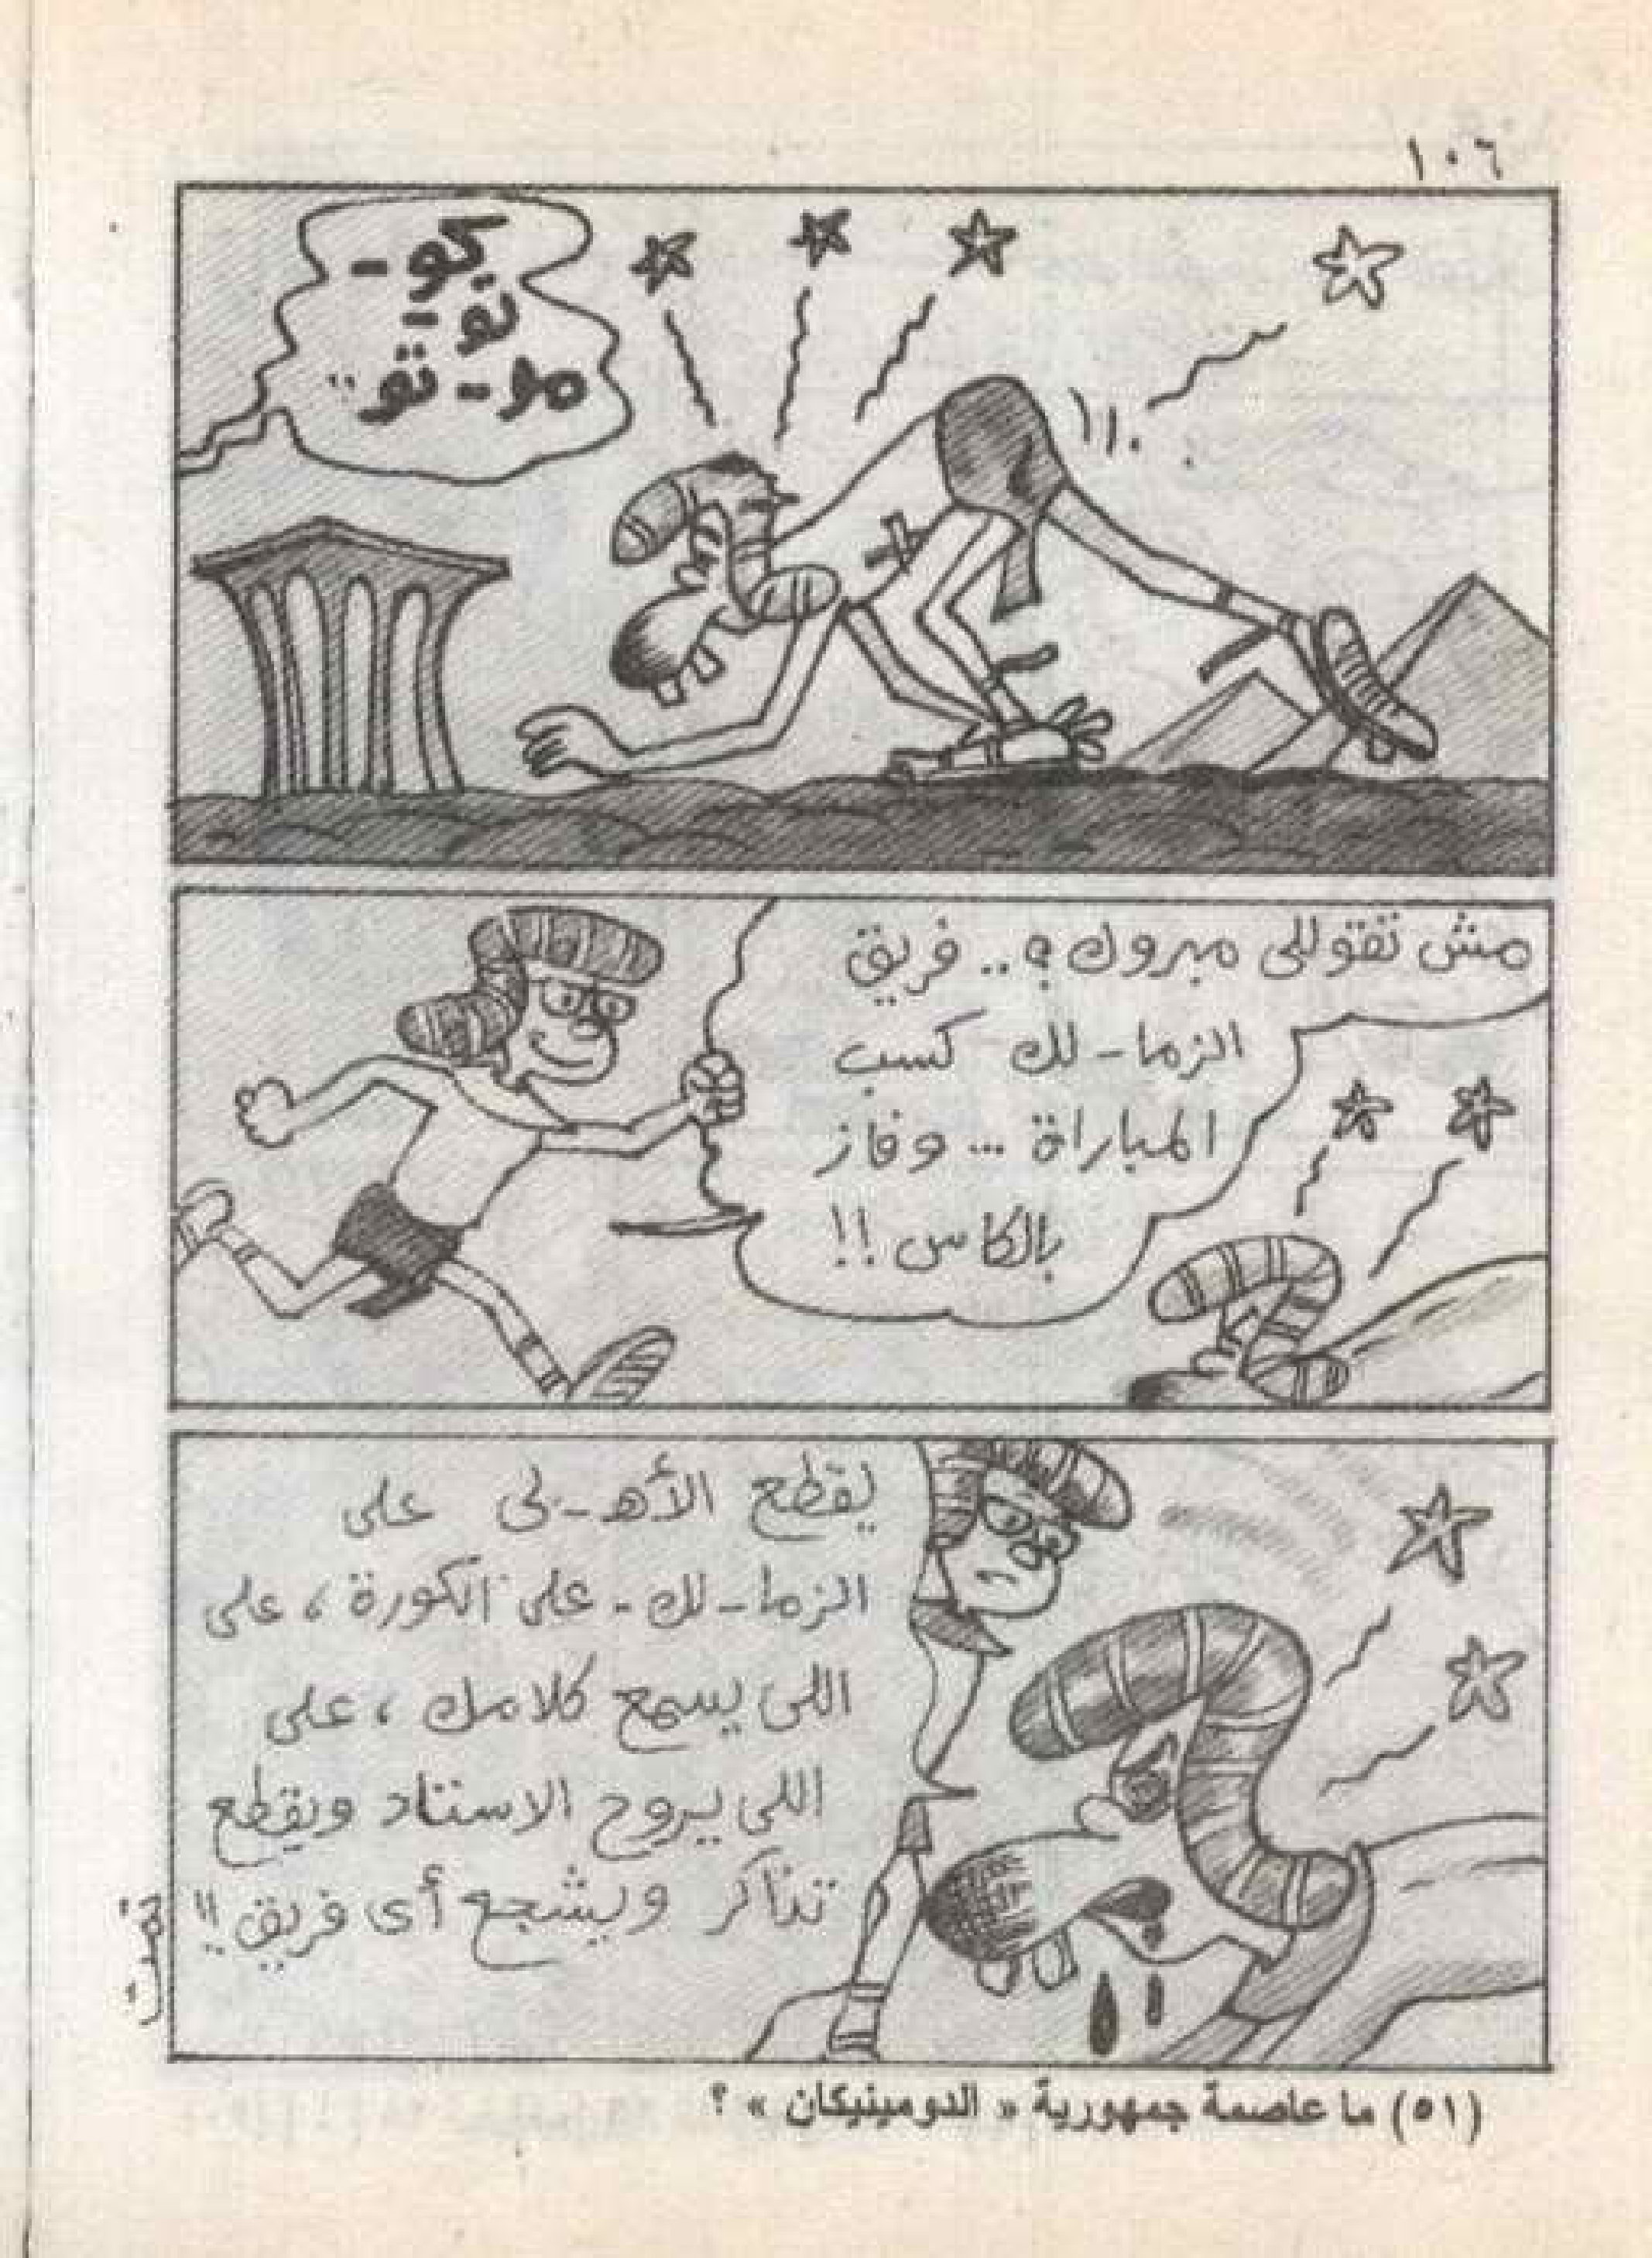 ١٠٦
كو -
تو -
مو - تو ..
مش تقوللى مبروك ؟ .. فريق
الزما - لك كسب
المباراة ... وفاز
بالكاس !!
يقطع الأهـ - لى على
الزما - لك - على الكورة ، على
اللى يسمع كلامك ، على
اللى يروح الاستاد ويقطع
تذاكر ويشجع أى فريق !!
تمت
(٥١) ما عاصمة جمهورية « الدومينيكان » ؟